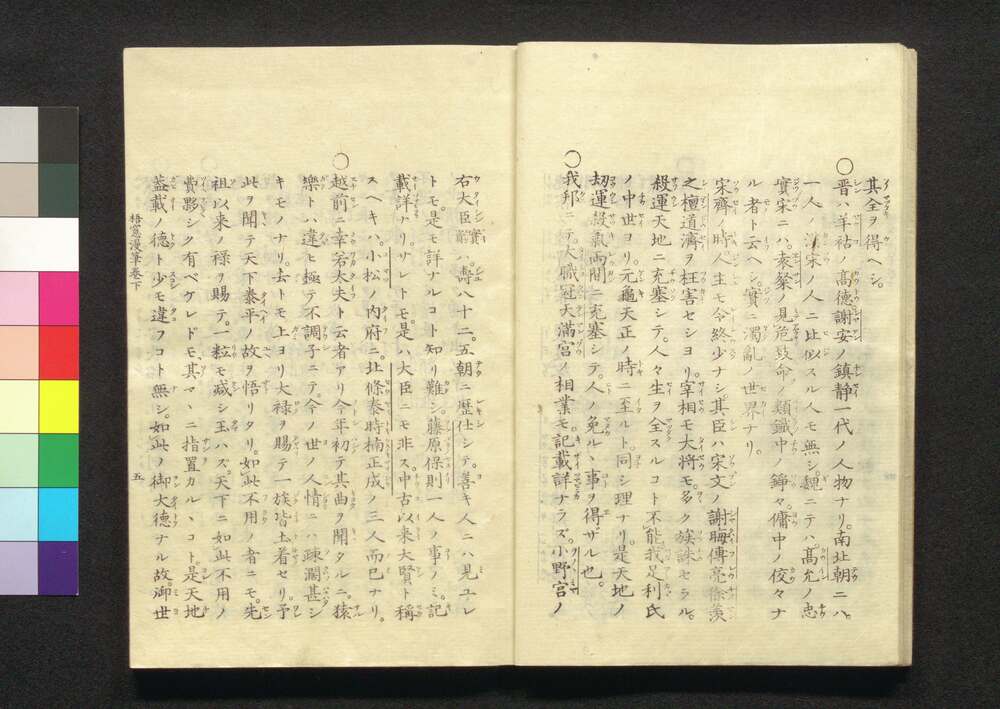 其全ヲ得ヘシ。
○晋ハ羊祜ノ高德謝安ノ鎮静一代ノ人物ナリ。南北朝ニハ。
一人ノ漢宋ノ人ニ比似スル人モ無シ。魏ニテハ高允ノ忠
實宋ニハ。袁粲ノ見危致命ノ類鐵中ノ錚々。傭中ノ佼々ナ
ル者ト云ヘシ。實ニ濁亂ノ世界ナリ。
宋齊ノ時人主モ令終少ナシ。其臣ハ宋文ノ謝晦傅亮徐羨
之檀道濟ヲ枉害セシヨリ。宰相モ大將モ。多ク族誅セラル。
殺運天地ニ充塞シテ。人々生ヲ全スルコト不能我足利氏
ノ中世ヨリ元龜天正ノ時ニ至ルト同シ理ナリ。是天地ノ
劫運殺氣両間ニ充塞シテ。人ノ免ルヽ事ヲ得ザル也。
○我邦ニテ。大職冠天滿宮ノ相業モ記載詳ナラズ。小野宮ノ
右大臣實資ハ。壽八十二。五朝ニ歴仕シテ。善キ人ニハ見ユレ
トモ。是モ詳ナルコト知リ難シ。藤原保則一人ノ事ノミ。記
載詳ナリ。サレトモ。是ハ大臣ニモ非ス。中古以来大賢ト稱
スヘキハ。小松ノ内府ニ。北條泰時楠正成ノ三人而已ナリ。
○越前ニ幸若大夫ト云者アリ今年初テ其曲ヲ聞タルニ。猿
樂トハ違ヒ極テ不調子ニテ。今ノ世ノ人情ニハ疎濶甚シ
キモノナリ。去トモ上ヨリ大禄ヲ賜テ一族皆土着セリ予
此ヲ聞テ天下泰平ノ故ヲ悟リタリ。如此不用ノ者ニモ。先
祖以来ノ禄ヲ賜テ。一粒モ減シ玉ハズ。天下ニ如此不用ノ
費夥シク有ベケレドモ、其マヽニ指置カルヽコト是天地
蓋載ノ德ト少モ違フコト無シ。如此ノ御大德ナル故。御世
梧窓漫筆巻下
五